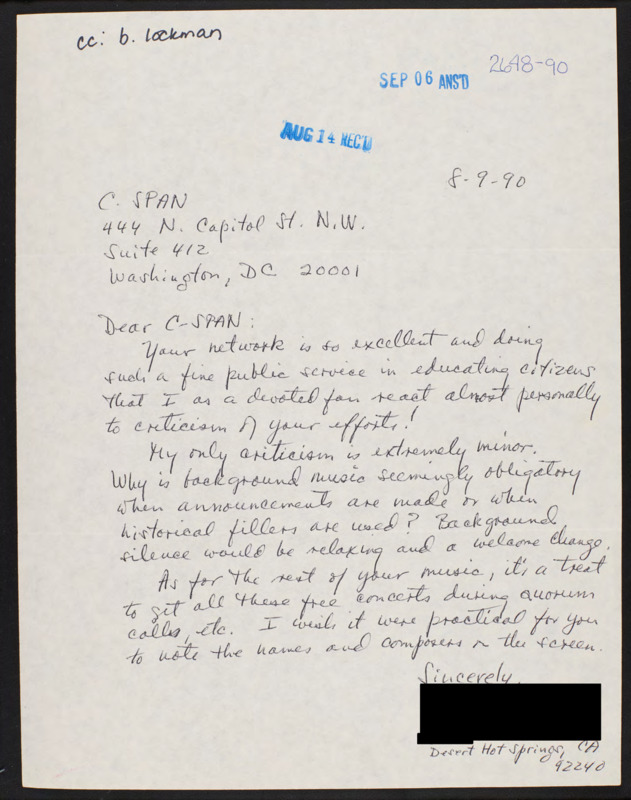 cc: b. lockman
2648-90
SEP 06 ANS'D
AUG 14 REC'D
8-9-90
C. SPAN
444 N. Capitol St. N.W.
Suite 412
Washington, DC 20001
Dear C-SPAN:
Your network is so excellent and doing
such a fine public service in educating citizens
that I as a devoted fan react almost personally
to criticism of your efforts!
My only criticism is extremely minor.
Why is background music seemingly obligatory
when announcements are made or when
historical fillers are used? Background
silence would be relaxing and a welcome change.
As for the rest of your music, it's a treat
to get all these free concerts during quorum
calls, etc. I wish it were practical for you
to note the names and composers on the screen.
Sincerely,
Desert Hot Springs, CA
92240